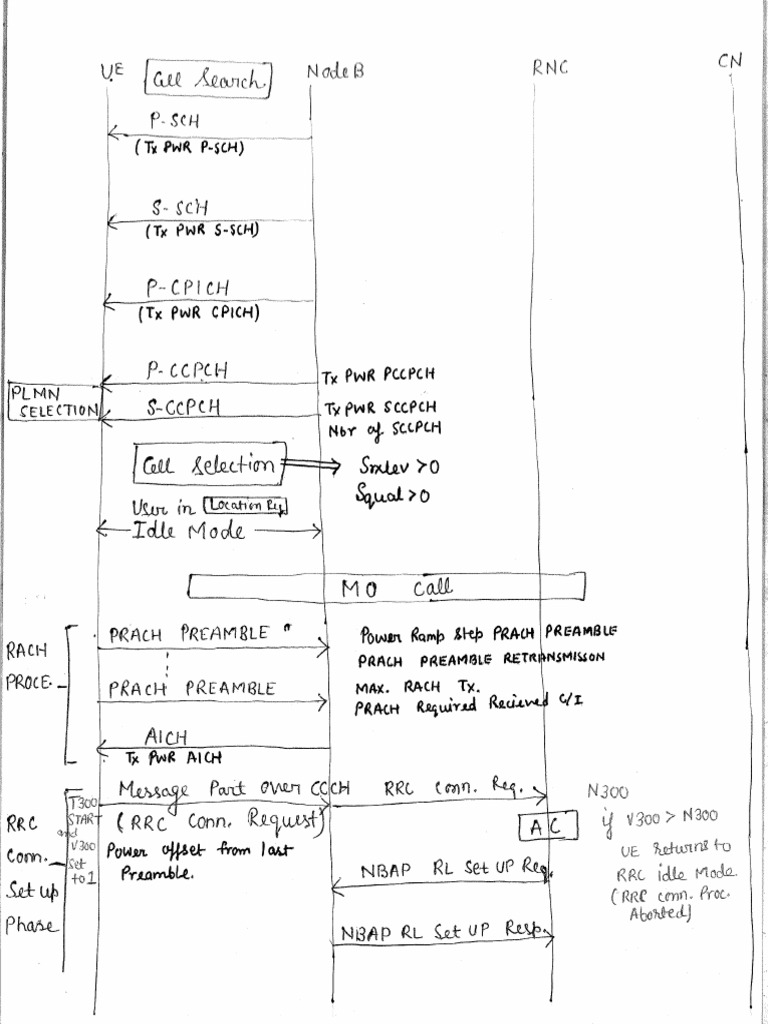 UE
Cell Search
NodeB
RNC
CN
P-SCH
(Tx PWR P-SCH)
S-SCH
(Tx PWR S-SCH)
P-CPICH
(Tx PWR CPICH)
P-CCPCH
Tx PWR PCCPCH
PLMN
SELECTION
S-CCPCH
Tx PWR SCCPCH
Nbr of SCCPCH
Cell Selection
Srxlev >0
Squal >0
User in Location Reg
Idle Mode
MO Call
RACH
PROCE.
PRACH PREAMBLE
Power Ramp Step PRACH PREAMBLE
PRACH PREAMBLE RETRANSMISSON
PRACH PREAMBLE
MAX. RACH Tx.
PRACH Required Recieved C/I
AICH
Tx PWR AICH
RRC
Conn.
Set up
Phase
T300
START
and
V300
Set
to 1
Message Part over CCCH
(RRC Conn. Request)
Power offset from last
Preamble.
RRC Conn. Req.
AC
N300
if V300 > N300
UE Returns to
RRC idle Mode.
(RRC conn. Proc.
Aborted)
NBAP RL Set UP Req.
NBAP RL Set UP Resp.